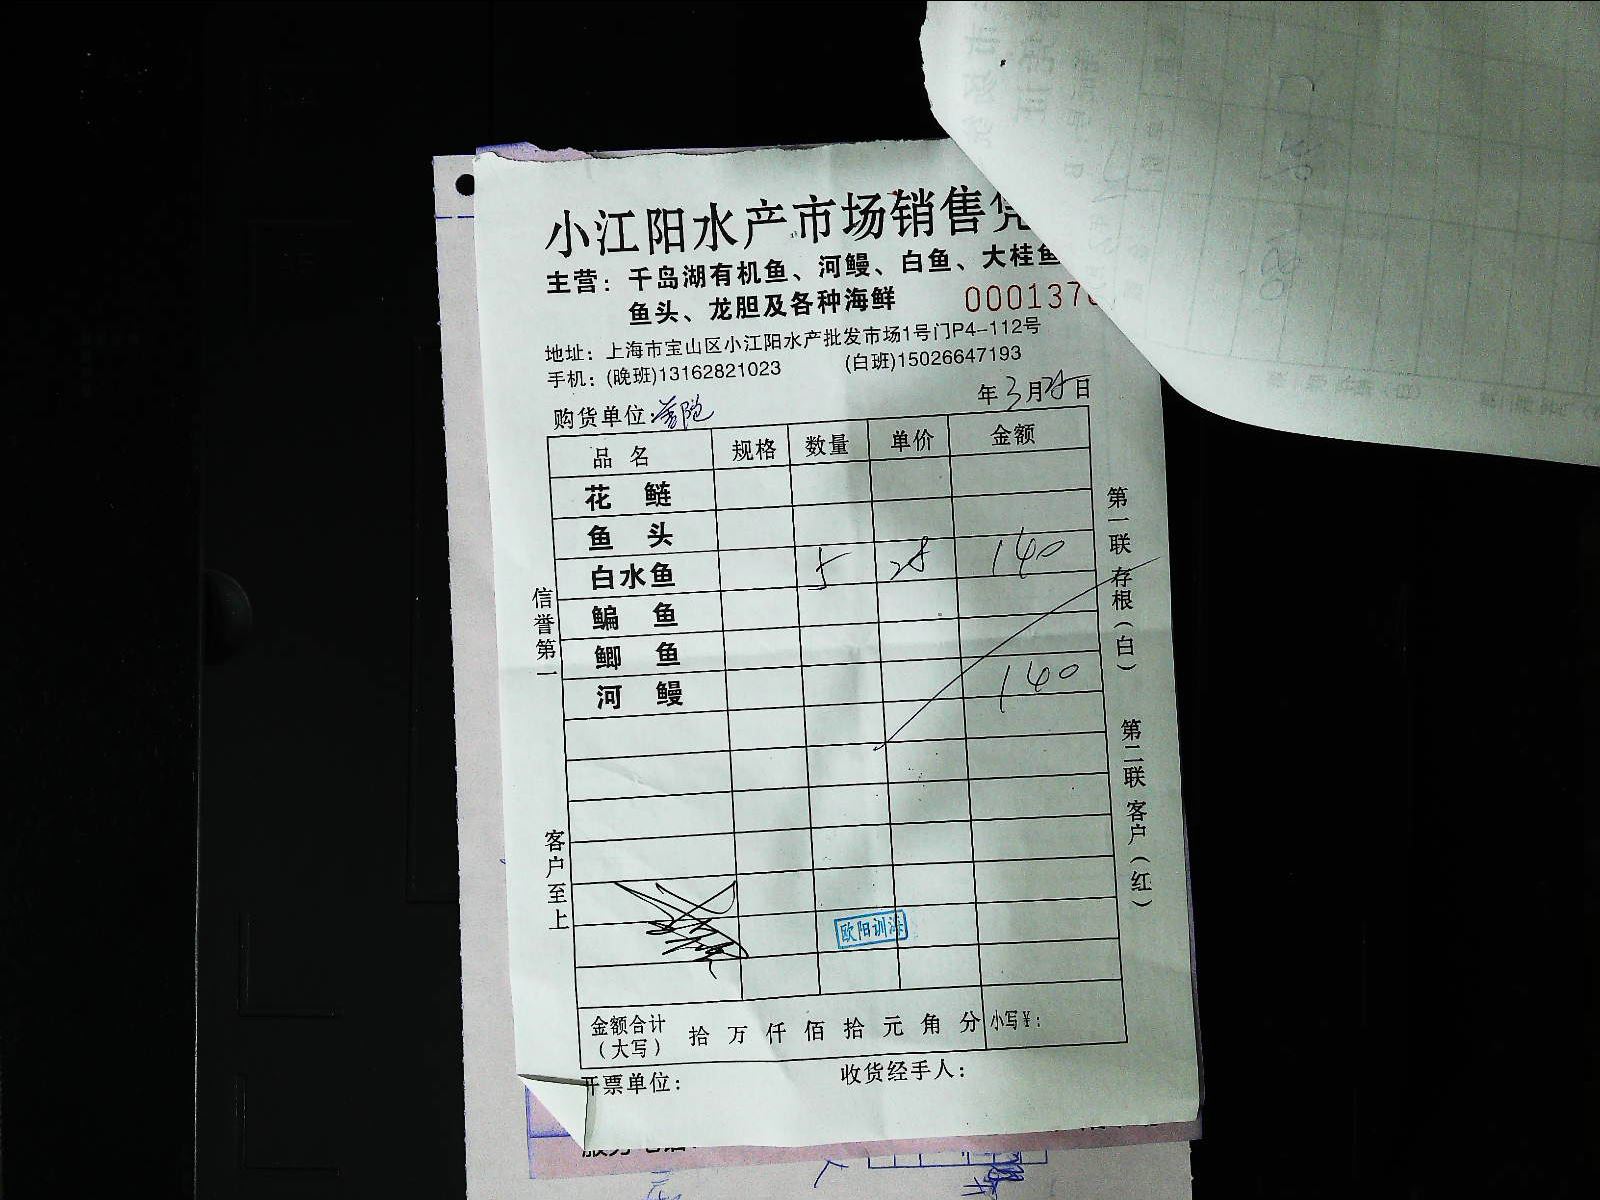 小江阳水产市场销售
主营：千岛湖有机鱼、河鳗、白鱼、大桂鱼
鱼头、龙胆及各种海鲜
0001376
地址：上海市宝山区小江阳水产批发市场1号门P4-112号
手机：(晚班)13162821023 (白班)15026647193
年3月28日
购货单位：
品名 规格 数量 单价 金额
花鲢
鱼头
白水鱼 5 28 140
鳊鱼
鲫鱼
河鳗 140
金额合计（大写） 拾万仟佰拾元角分 小写¥：
开票单位： 收货经手人：
信誉第一
客户至上
第一联 存根（白）
第二联 客户（红）
欧阳训海